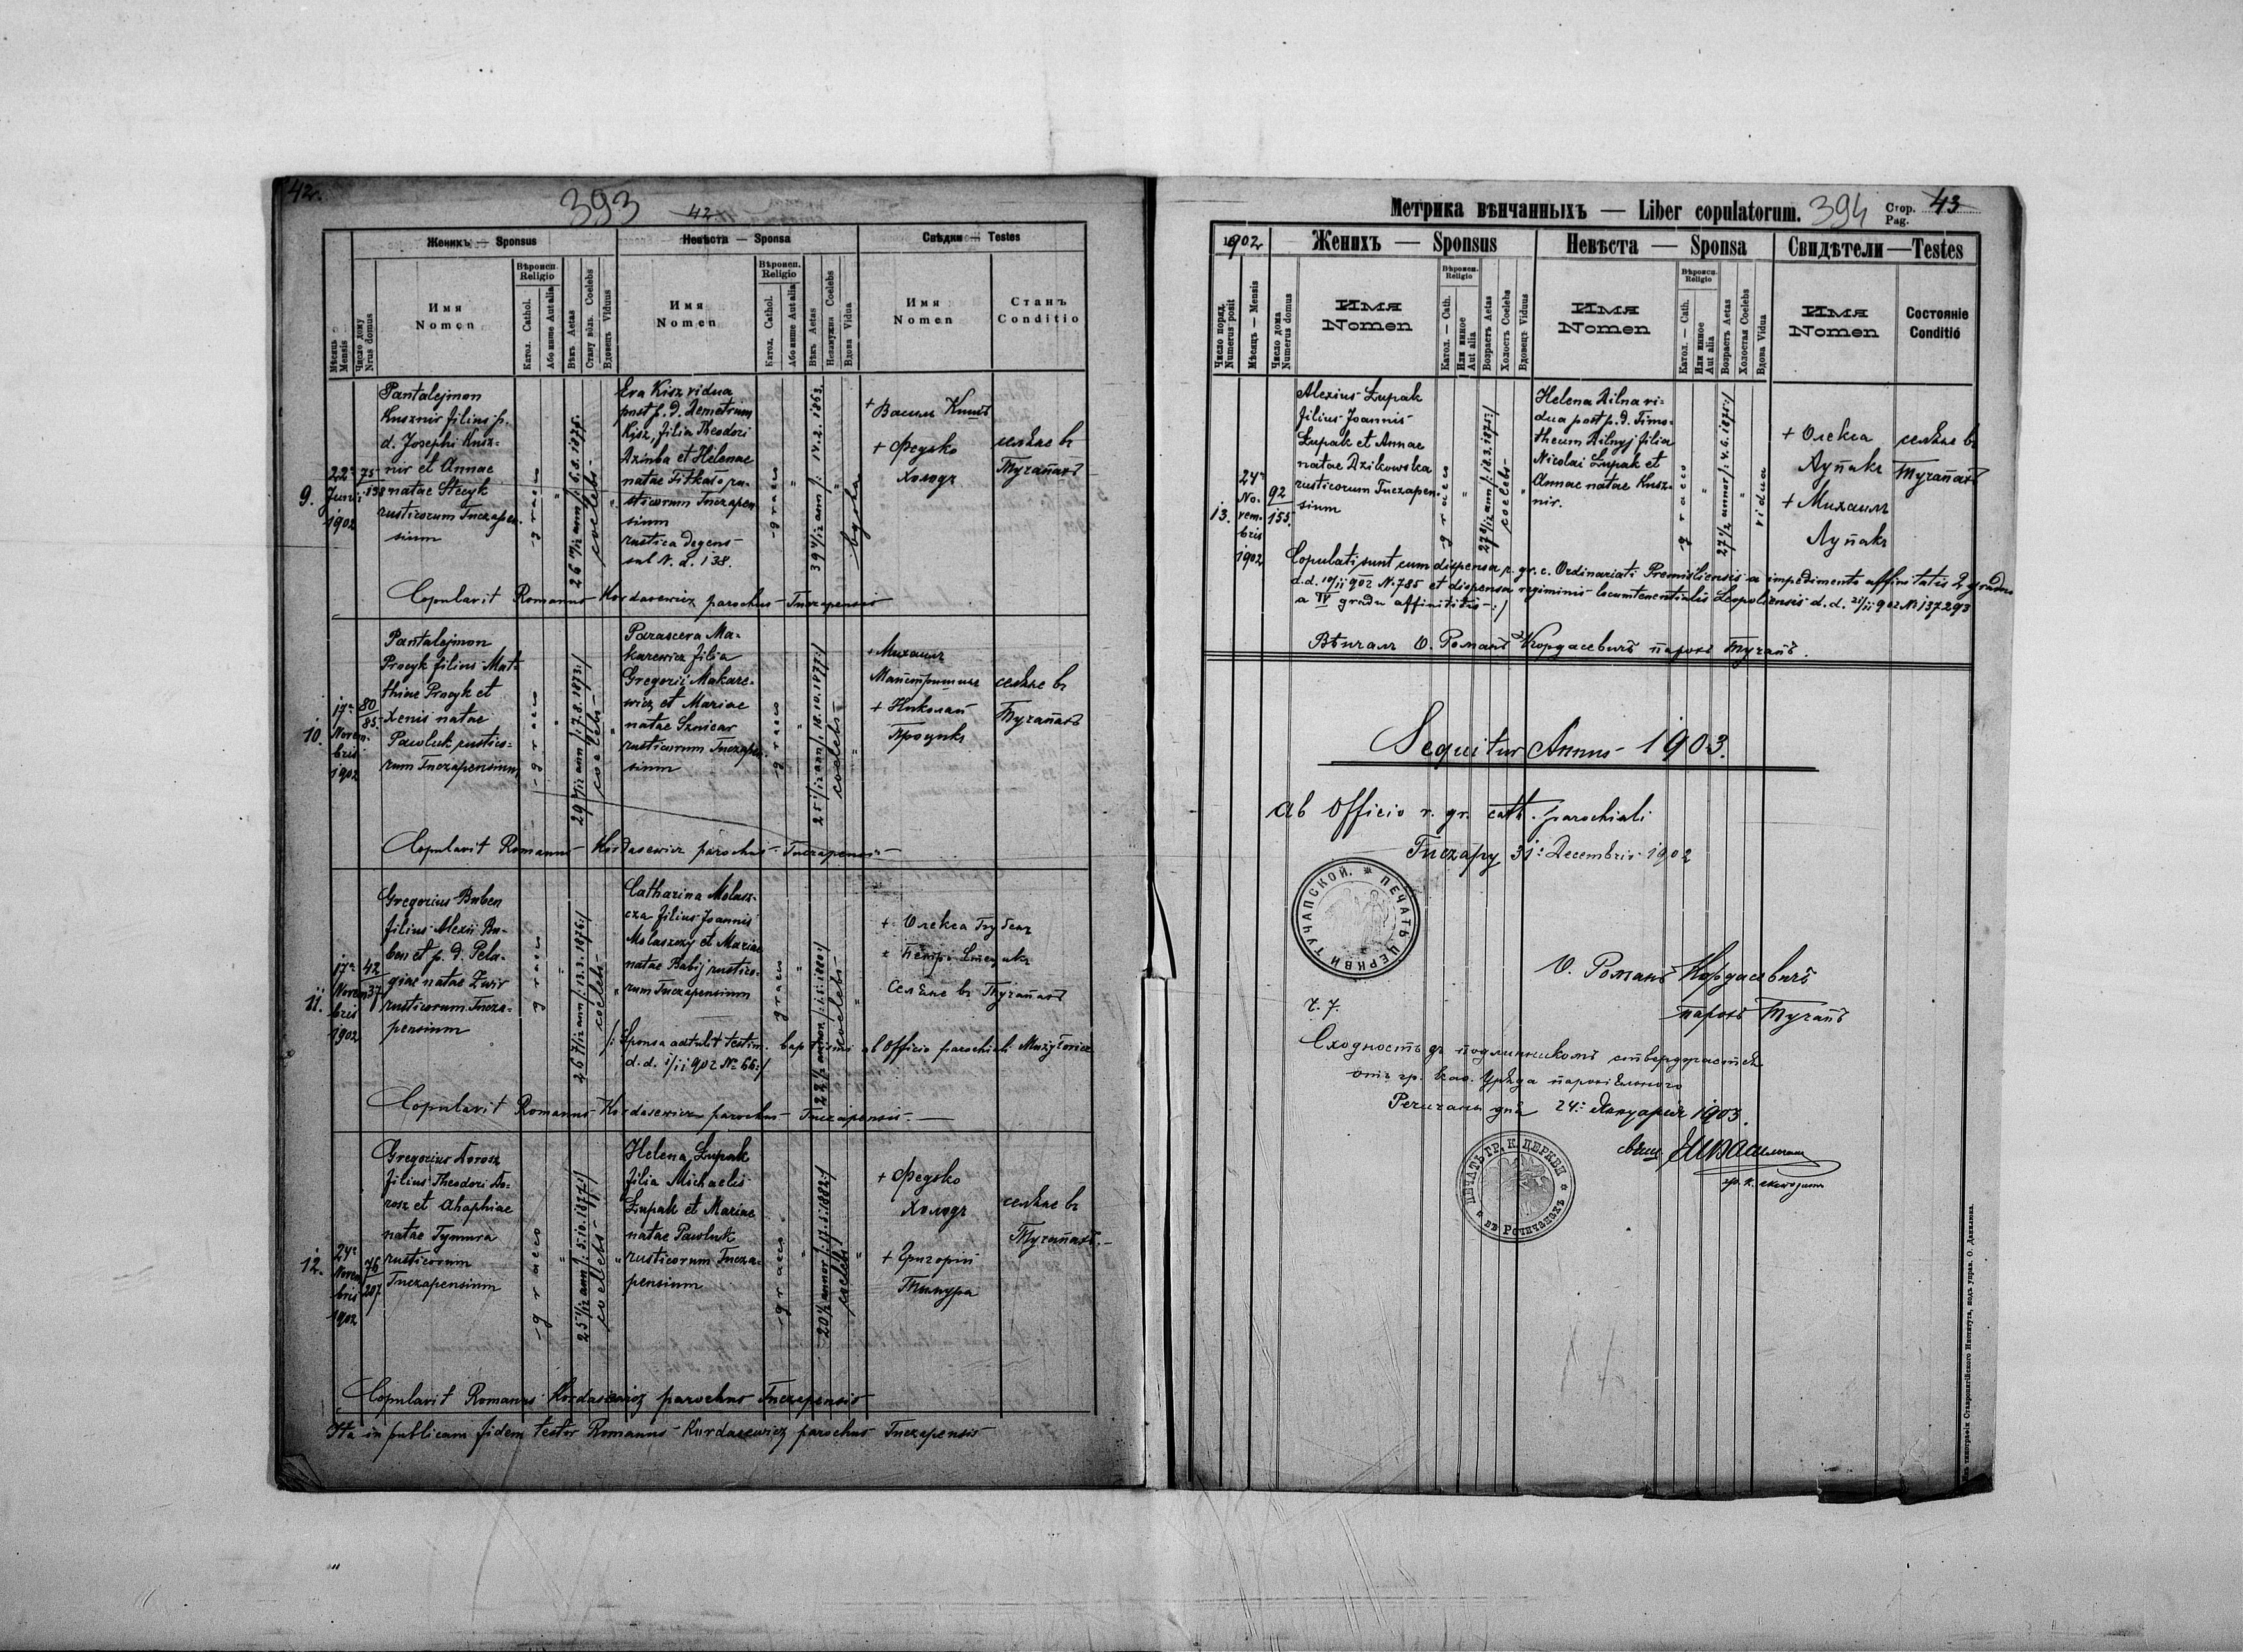 42.
393
42
Женихъ — Sponsus
Невѣста — Sponsa
Свѣдки — Testes
Мѣсяць Mensis
Число дому Nrus domus
Имя Nomen
Вѣроисп. Religio
Катол. Cathol.
Або инше Aut alia
Вѣкъ Aetas
Стану вôльн. Coelebs
Вдовець Viduus
Имя Nomen
Вѣроисп. Religio
Катол. Cathol.
Або инше Aut alia
Вѣкъ Aetas
Незамужна Coelebs
Вдова Vidua
Имя Nomen
Станъ Conditio
9.
22a Junii 1902
75/138
Pantalejmon
Kusznir filius p.
d. Josephi Kusz-
nir et Annae
natae Stecyk
rusticorum Tuczapen-
sium
graeco
26 10/12 ann /: 6.8.1875.
coelebs
Eva Kisz vidua
post p. d. Demetrium
Kisz, filia Theodori
Dziuba et Helenae
natae Fitkało ru-
sticorum Tuczapen
sium
rustica degens
sub N. d. 138.
graeco
39 4/12 ann /: 14.2.1863.
vidua
+ Василь Кишъ
+ Федько
Холодъ
селяне въ
Тучапахъ
Copulavit Romanus Kordasewicz parochus Tuczapensis
10.
17a Novembris 1902
80/83
Pantalejmon
Procyk filius Mat-
thiae Procyk et
Xenii natae
Pawluk rustico-
rum Tuczapensium
graeco
29 3/12 ann /: 7.8.1873:/
coelebs
Parasceva Ma-
karewicz filia
Gregorii Makare-
wicz et Mariae
natae Sznicar
rusticorum Tuczapen-
sium
graeco
25 1/12 ann /: 18.10.1877:/
coelebs
+ Михаилъ
+ Николай
Процикъ
селяне въ
Тучапахъ
Copulavit Romanus Kordasewicz parochus Tuczapensis
11.
17a Novembris 1902
42/37
Gregorius Buben
filius Alexii Bu-
ben et p. d. Pela-
giae natae Zwir
rusticorum Tucza-
pensium
graeco
26 7/12 ann /: 13.3.1876:/
coelebs
Catharina Molasz-
cza filius Joannis
Molaszczy et Mariae
natae Babij rustico-
rum Tuczapensium
graeco
coelebs
+ Олекса Бубенъ
+ Петро Стецикъ
Селяне въ Тучапахъ
/: Sponsa adtulit testim. baptismi ab Officio parochiali Mużyłowice
d. d. 1/11 902 No 66:/
Copulavit Romanus Kordasewicz parochus Tuczapensis
12.
24a Novembris 1902
76/207
Gregorius Dorosz
filius Theodori Do-
rosz et Ahaphiae
natae Tymura
rusticorum
Tuczapensium
graeco
25 1/12 ann /: 5.10.1877:/
coelebs
Helena Łupak
filia Michaelis
Łupak et Mariae
natae Pawluk
rusticorum Tucza-
pensium
graeco
coelebs
+ Федько
Холодъ
+ Григорій
Тимура
селяне въ
Тучапахъ.
Copulavit Romanus Kordasewicz parochus Tuczapensis
Ita in publicam fidem testor Romanus Kordasewicz parochus Tuczapensis
Метрика вѣнчанныхъ — Liber copulatorum.
394
Стор. Pag. 43
1902
Женихъ — Sponsus
Невѣста — Sponsa
Свидѣтели — Testes
Число поряд. Numerus posit
Мѣсяцъ — Mensis
Число дома Numerus domus
Имя Nomen
Вѣроисп. Religio
Катол. — Cath.
Или инное Aut alia
Возрастъ Aetas
Холостъ Coelebs
Вдовецъ Viduus
Имя Nomen
Вѣроисп. Religio
Катол. — Cath.
Или инное Aut alia
Возрастъ Aetas
Холостая Coelebs
Вдова Vidua
Имя Nomen
Состояніе Conditio
13.
24a Novembris 1902
92/155.
Alexius Łupak
filius Joannis
Łupak et Annae
natae Dzikowska
rusticorum Tuczapen-
sium
graeco
27 8/12 ann /: 18.3.1875:/
coelebs
Helena Dilna vi-
dua post p. d. Timo-
theum Dilnyj filia
Nicolai Łupak et
Annae natae Kusz-
nir.
graeco
vidua
+ Олекса
Лупакъ
+ Михаилъ
Лупакъ
селяне въ
Тучапахъ
Copulati sunt cum dispensa r. gr. c. Ordinariati Premisliensis a impedimento affinitatis 2 gradus
d. d. 10/11 902 N. 785 et dispensa regiminis locumtenentialis Leopoliensis d. d. 21/11 902 No 137293
a IV gradu affinitatis :/
Вѣнчалъ О. Романъ Кордасевичъ парохъ Тучапъ.
Sequitur Annus 1903.
Ab Officio r. gr. cath. parochiali
Tuczapy 31: Decembris 1902
ПЕЧАТЬ ЦЕРКВИ ТУЧАПСКОЙ.
О. Романъ Кордасевичъ
парохъ Тучапъ
Ч. 7.
Сходность съ подлинникомъ ствердораєтся
отъ гр. као. Уряда парохіяльного
Речичаны дня 24: Януарія 1903.
ПЕЧАТЬ ГР. К. ЦЕРКВИ въ Речичанахъ
Изъ типографіи Ставропигійского Института, подъ управ. О. Данилюка.